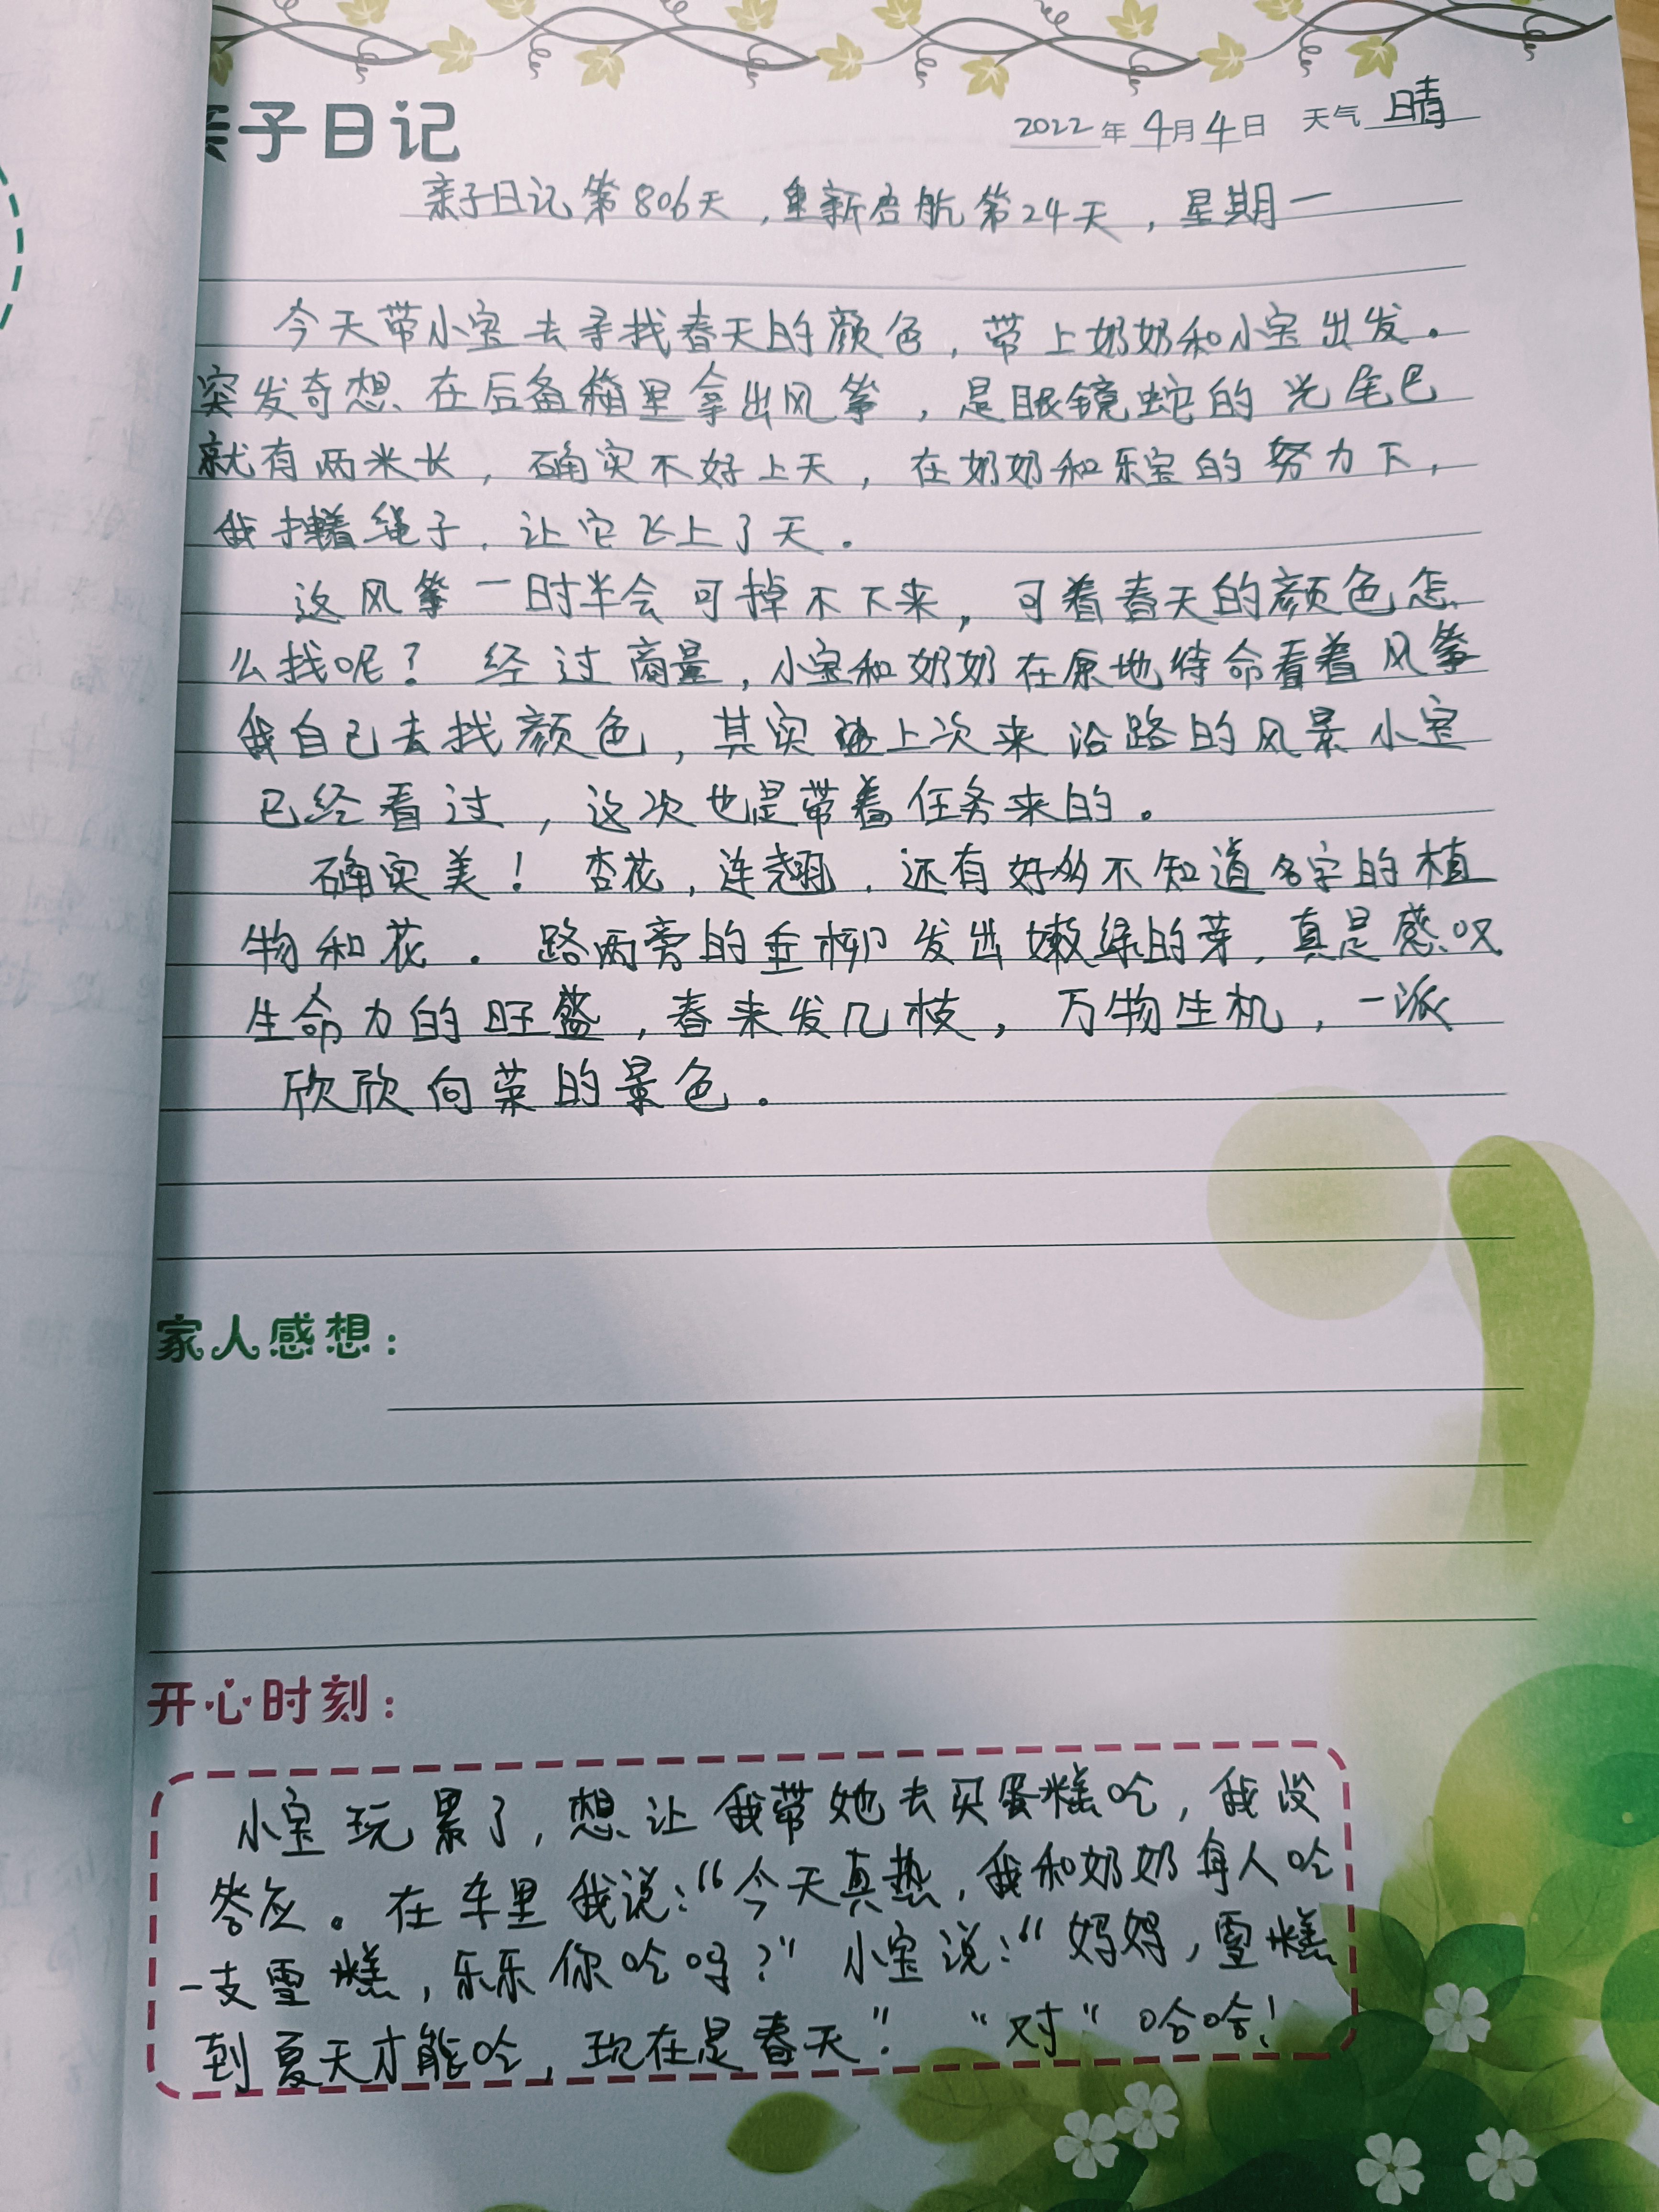 亲子日记
2022年4月4日 天气 晴
亲子日记第806天，重新启航第24天，星期一
今天带小宝去寻找春天的颜色，带上奶奶和小宝出发。
突发奇想、在后备箱里拿出风筝，是眼镜蛇的光尾巴
就有两米长，确实不好上天，在奶奶和乐宝的努力下，
我拽着绳子，让它飞上了天。
这风筝一时半会可掉不下来，可着春天的颜色怎
么找呢？经过商量，小宝和奶奶在原地待命看着风筝
我自己去找颜色，其实上次来沿路的风景小宝
已经看过，这次也是带着任务来的。
确实美！杏花，连翘，还有好多不知道名字的植
物和花。路两旁的垂柳发出嫩绿的芽，真是感叹
生命力的旺盛，春来发几枝，万物生机，一派
欣欣向荣的景色。
家人感想：
开心时刻：
小宝玩累了，想让我带她去买蛋糕吃，我没
答应。在车里我说：“今天真热，我和奶奶每人吃
一支雪糕，乐乐你吃吗？”小宝说：“妈妈，雪糕
到夏天才能吃，现在是春天”。“对”哈哈！